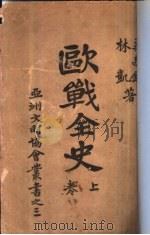 林凱著
歐戰全史
上
卷
亞洲文明協會叢書之三